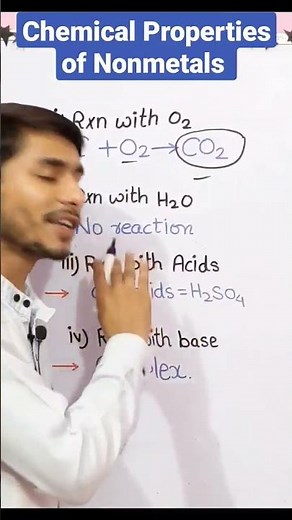 Chemical Properties
of Nonmetals
Rxn with O₂
+ O₂ → CO₂
with H₂O
No reaction
iii) with Acids
→ = H₂SO₄
iv) with base
→